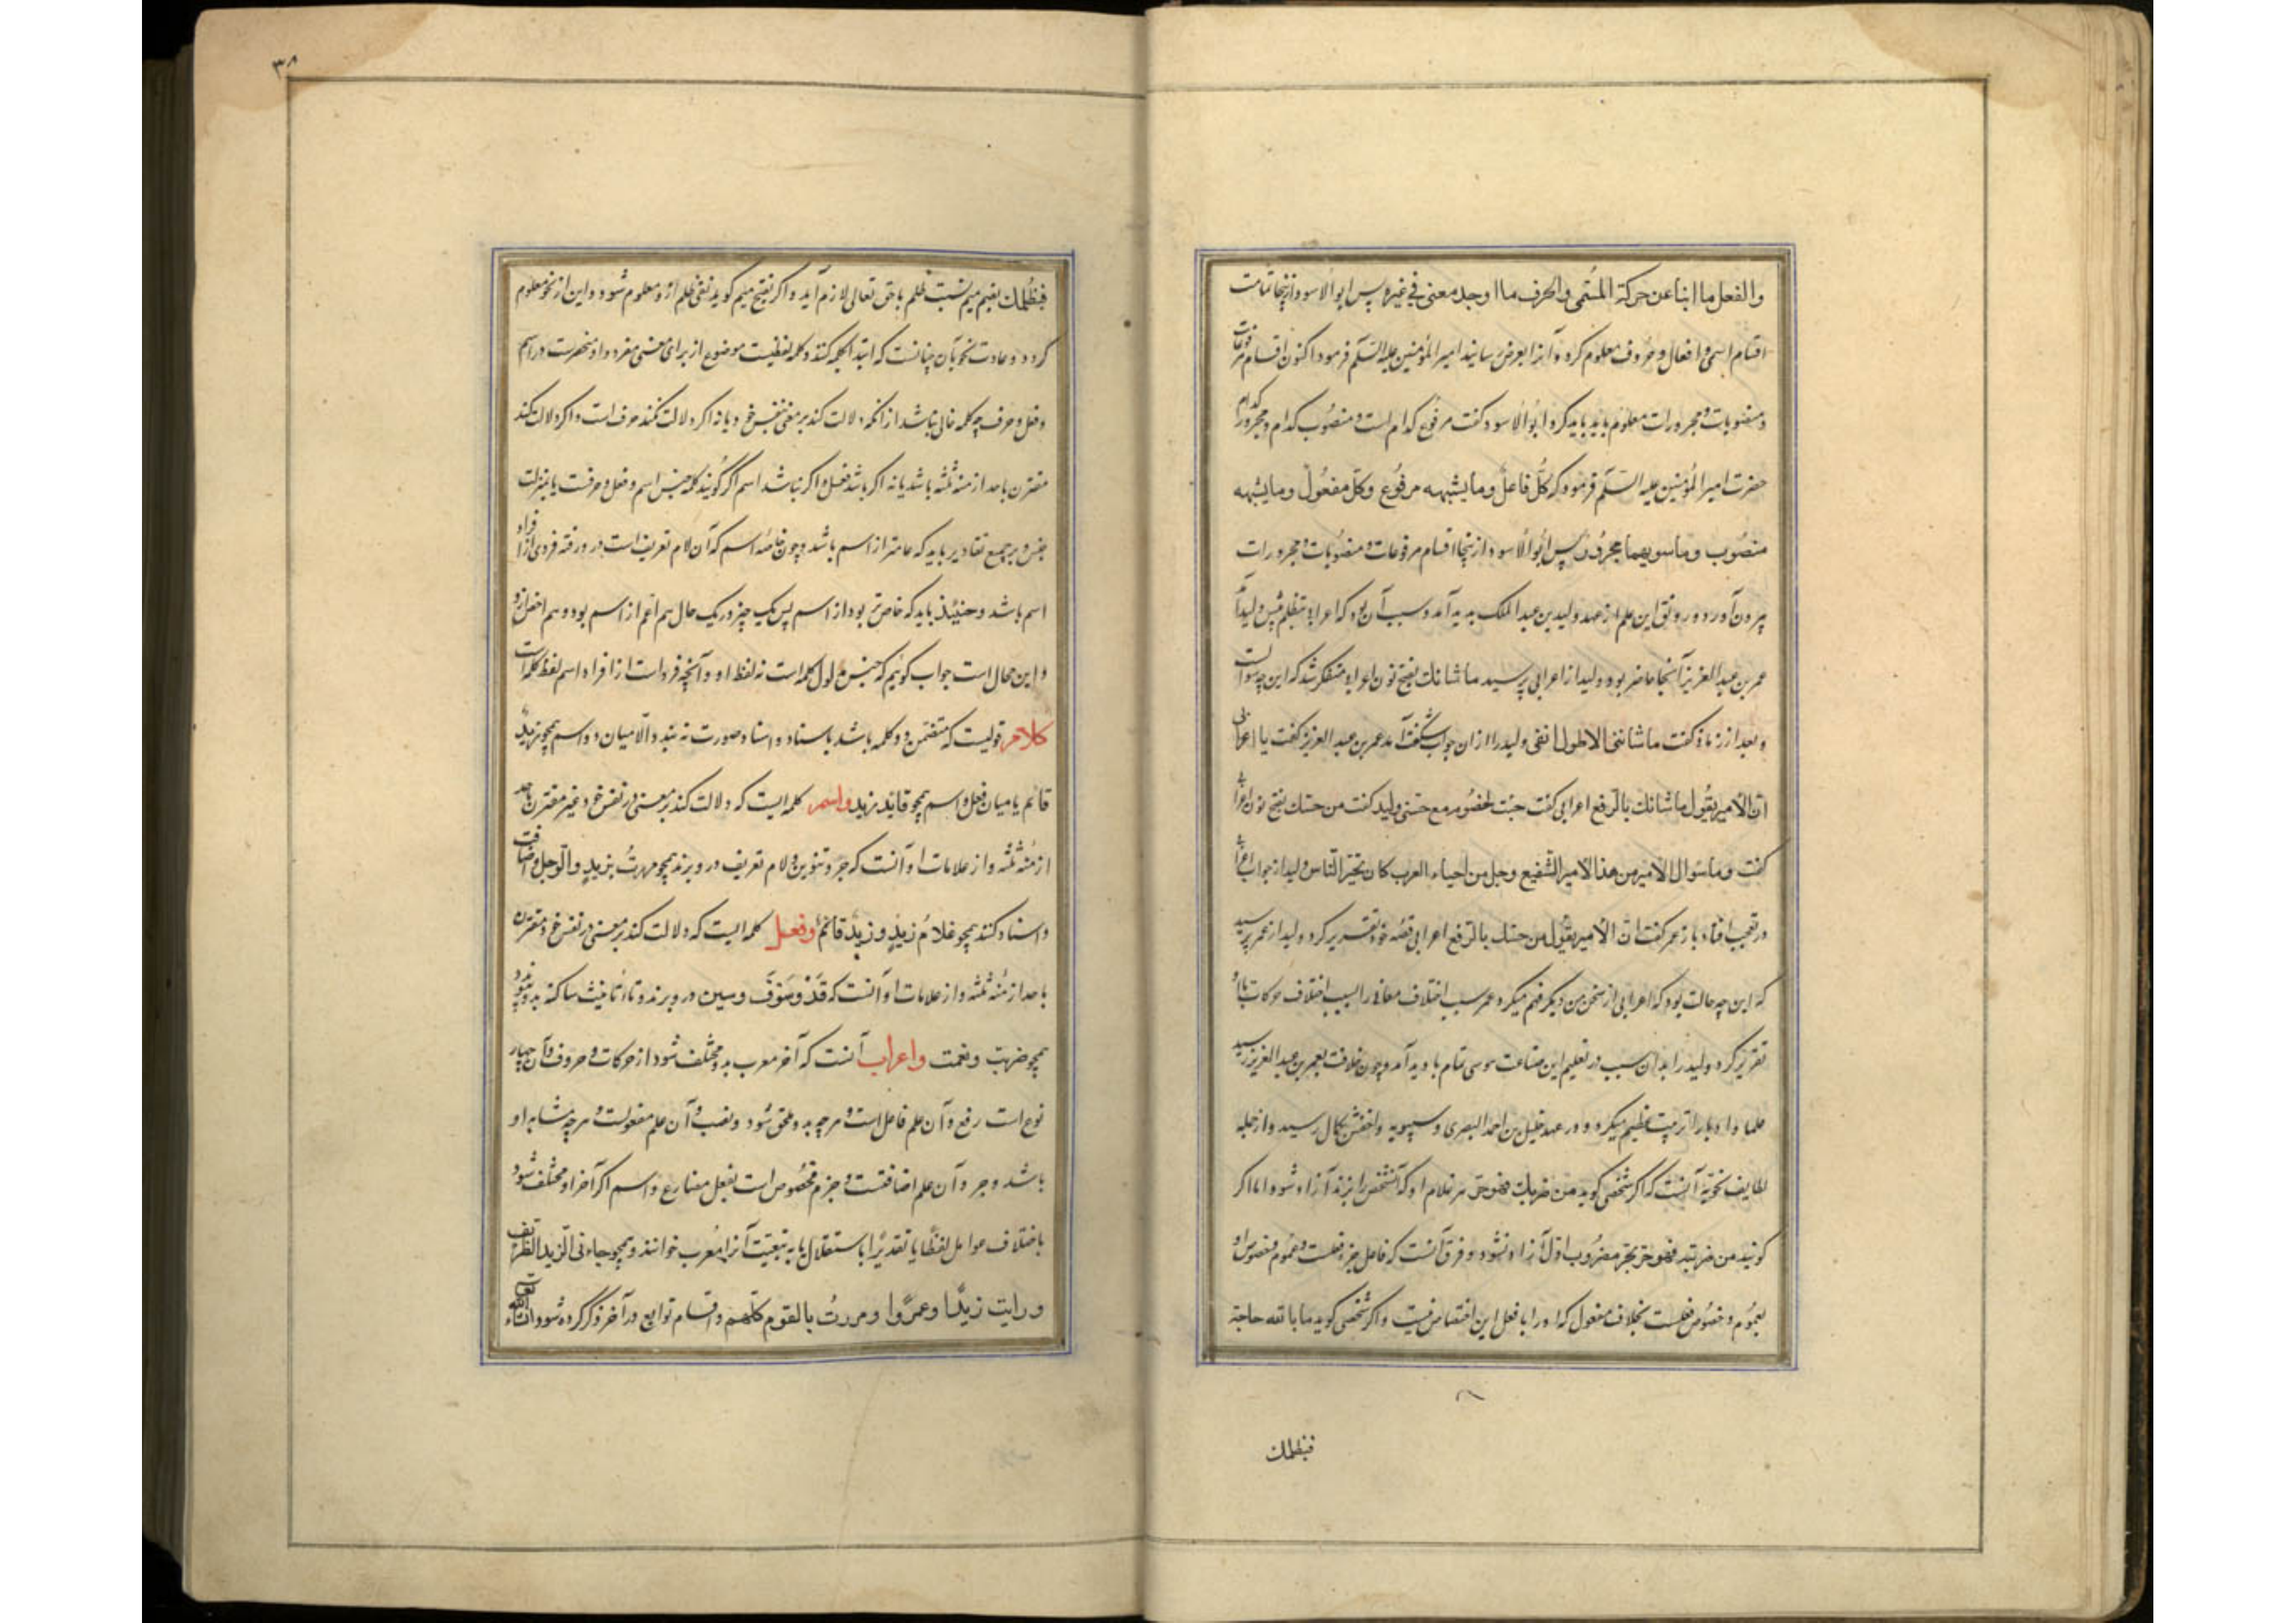 والفعل ما انبا عن حركة المسمى والحرف ما اوجد معنى في غيره پس ابوالاسود ازینجا تمامت
اقسام اسمی و افعال و حروف معلوم کرد و آنرا بعرض رسانید امیر المؤمنین علیه السلم فرمود اکنون اقسام مرفوعات
و منصوبات و مجرورات معلوم باید کرد ابوالاسود کفت مرفوع کدام است و منصوب کدام و مجرور کدام
حضرت امیر المؤمنین علیه السلم فرمود که كل فاعل وما يشبهه مرفوع وكل مفعول وما يشبهه
منصوب وما سويهما مجرور پس ابوالاسود ازینجا اقسام مرفوعات و منصوبات و مجرورات
بیرون آورد و رونق این علم از عهد ولید بن عبد الملک پدید آمد و سبب آن بود که اعرابی بتظلم پیش ولید آمد
عمر بن عبد العزیز آنجا حاضر بود ولید از اعرابی پرسید ما شانك بفتح نون اعرابی متفکر شد که این چه سوالست
و بعد از زمانی کفت ما شاننی الا طول انفی ولید را ازان جواب شکفت آمد عمر بن عبد العزیز کفت یا اعرابی
ان الامير يقول ما شانك بالرفع اعرابی کفت جئت لخصومة مع ختنی ولید کفت من ختنك بفتح نون اعرابی
کفت وما سوال الامير من هذا الامر الشنيع رجل من احياء العرب كان يختن الناس ولید از جواب اعرابی
در تعجب افتاد باز عمر کفت ان الامير يقول من ختنك بالرفع اعرابی قصه خود تقریر کرد ولید از عمر پرسید
که این چه حالت بود که اعرابی از سخن من دیکر فهم میکرد عمر سبب اختلاف معانی را بسبب اختلاف حرکات باو
تقریر کرد ولید را بدان سبب در تعلیم این صناعت هوسی تمام بادید آمد و چون خلافت بعمر بن عبد العزیز رسید
علما و ادبا را تربیت عظیم میکرد و در عهد خلیل بن احمد البصری و سیبویه و اخفش بکمال رسید و از جمله
لطایف نحویه آنست که اکر شخصی کوید من ضربك فهو حر هر غلام او که آنشخص را بزند آزاد شود و اما اکر
کوید من ضربته فهو حر بجز مضروب اول آزاد نشود و فرق آنست که فاعل جزء فعلست و عموم و خصوص او
بعموم و خصوص فعلست بخلاف مفعول که او را با فعل این اختصاص نیست و اکر شخصی کوید ما بالله حاجة
فبظلمك
۳۸
فبظلمك بضم میم نسبت ظلم با حق تعالی لازم آید و اکر بفتح میم کوید نفی ظلم ازو معلوم شود و این از نحو معلوم
کردد و عادت نحویان چنانست که ابتدا بکلمه کنند و کلمه لفظیست موضوع از برای معنی مفرد و او منحصرست در اسم
و فعل و حرف چه کلمه خالی نباشد ازانکه دلالت کند بر معنی بنفس خود یا نه اکر دلالت نکند حرف است و اکر دلالت کند
مقترن باحد ازمنه ثلثه باشد یا نه اکر باشد فعل و اکر نباشد اسم اکر کویند کلمه جنس اسم و فعل و حرفست یا بمنزلت
جنس و بر جمیع تقادیر باید که عامتر از اسم باشد و چون خاصه اسم که آن لام تعریف است در و رفته فردی از افراد
اسم باشد و حینئذ باید که خاص تر بود از اسم پس یک چیز در یک حال هم اعم از اسم بود و هم اخص ازو
و این محال است جواب کوئیم که جنس مدلول کلمه است نه لفظ او و آنچه فرد است از افراد اسم لفظ کلمه است
کلام قولیست که متضمن دو کلمه باشد باسناد و اسناد صورت نه بندد الا میان دو اسم همچو زيد
قائم یا میان فعل و اسم همچو قائد زيد واسم کلمه ایست که دلالت کند بر معنی در نفس خود غیر مقترن باحد
ازمنه ثلثه و از علامات او آنست که جر و تنوین و لام تعریف در و برند همچو مررت بزيد والرجل و اضافت
و اسناد کنند همچو غلام زيد وزيد قائم وفعل کلمه ایست که دلالت کند بر معنی در نفس خود مقترن
باحد ازمنه ثلثه و از علامات او آنست که قد و سوف وسین در و برند و تاء تأنیث ساکنه بدو پیوندد
همچو ضربت ونعمت واعراب آنست که آخر معرب بدو مختلف شود از حرکات و حروف و آن چهار
نوع است رفع و آن علم فاعل است و هرچه بدو ملحق شود و نصب و آن علم مفعولست و هرچه مشابه او
باشد وجر و آن علم اضافتست و جزم مخصوص است بفعل مضارع و اسم اکر آخر او مختلف شود
باختلاف عوامل لفظا یا تقدیرا باستقلال یا به تبعیت آنرا معرب خوانند و همچو جاءنی الزید الظریف
ورایت زیدا وعمروا ومررت بالقوم کلهم و اقسام توابع در آخر ذکر کرده شود ان شاء الله تعالی